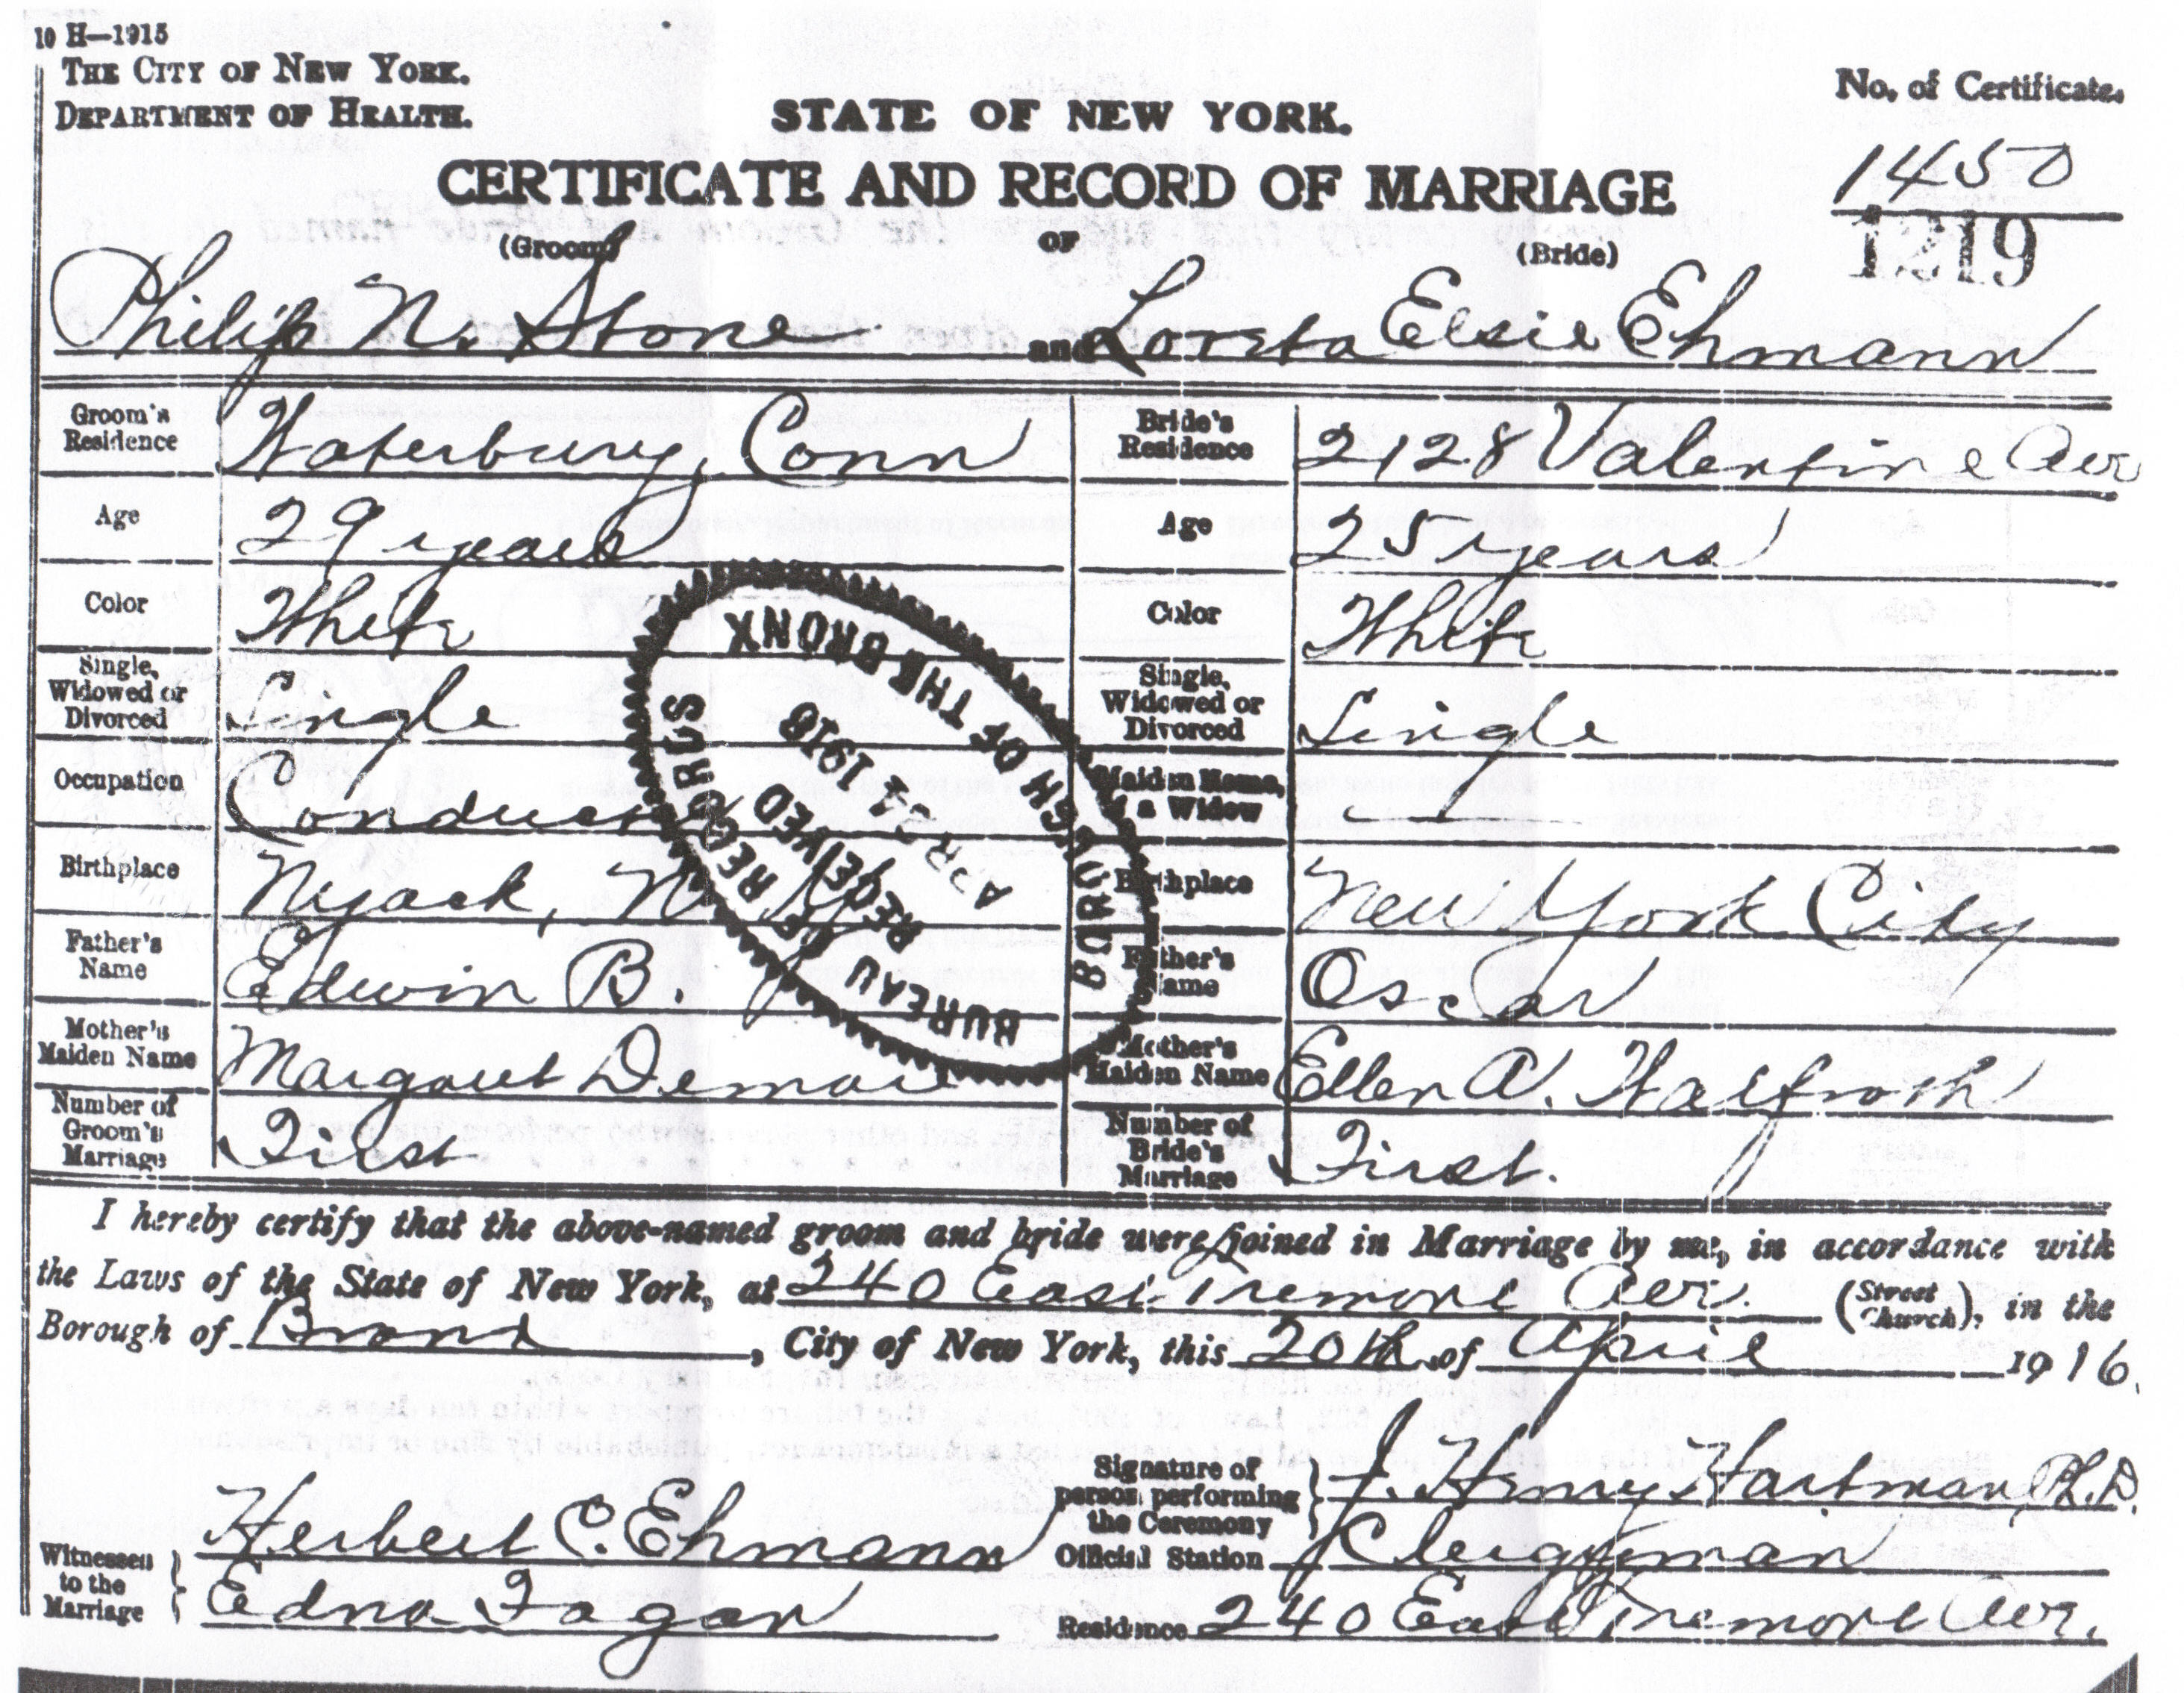 10 H—1915
THE CITY OF NEW YORK.
DEPARTMENT OF HEALTH.
No. of Certificate.
1450
1219
STATE OF NEW YORK.
CERTIFICATE AND RECORD OF MARRIAGE
(Groom) OF (Bride)
Philip N. Stone and Loretta Elsie Ehmann
Groom's Residence Waterbury, Conn Bride's Residence 2128 Valentine Ave
Age 29 years Age 25 years
Color White Color White
Single, Widowed or Divorced Single Single, Widowed or Divorced Single
Occupation Conductor Maiden Name, if a Widow —
Birthplace Nyack, N. Y. Birthplace New York City
Father's Name Edwin B. Father's Name Oscar
Mother's Maiden Name Margaret Mother's Maiden Name Ellen A.
Number of Groom's Marriage First Number of Bride's Marriage First.
BUREAU OF RECORDS
RECEIVED
APR 24 1916
BOROUGH OF THE BRONX
I hereby certify that the above-named groom and bride were joined in Marriage by me, in accordance with
the Laws of the State of New York, at 240 East Tremont Ave. (Street Church), in the
Borough of Bronx, City of New York, this 20th of April 1916.
Witnesses to the Marriage
Herbert C. Ehmann
Edna Fagan
Signature of person performing the Ceremony J. Henry Hartman, Ph.D.
Official Station Clergyman
Residence 240 East Tremont Ave.